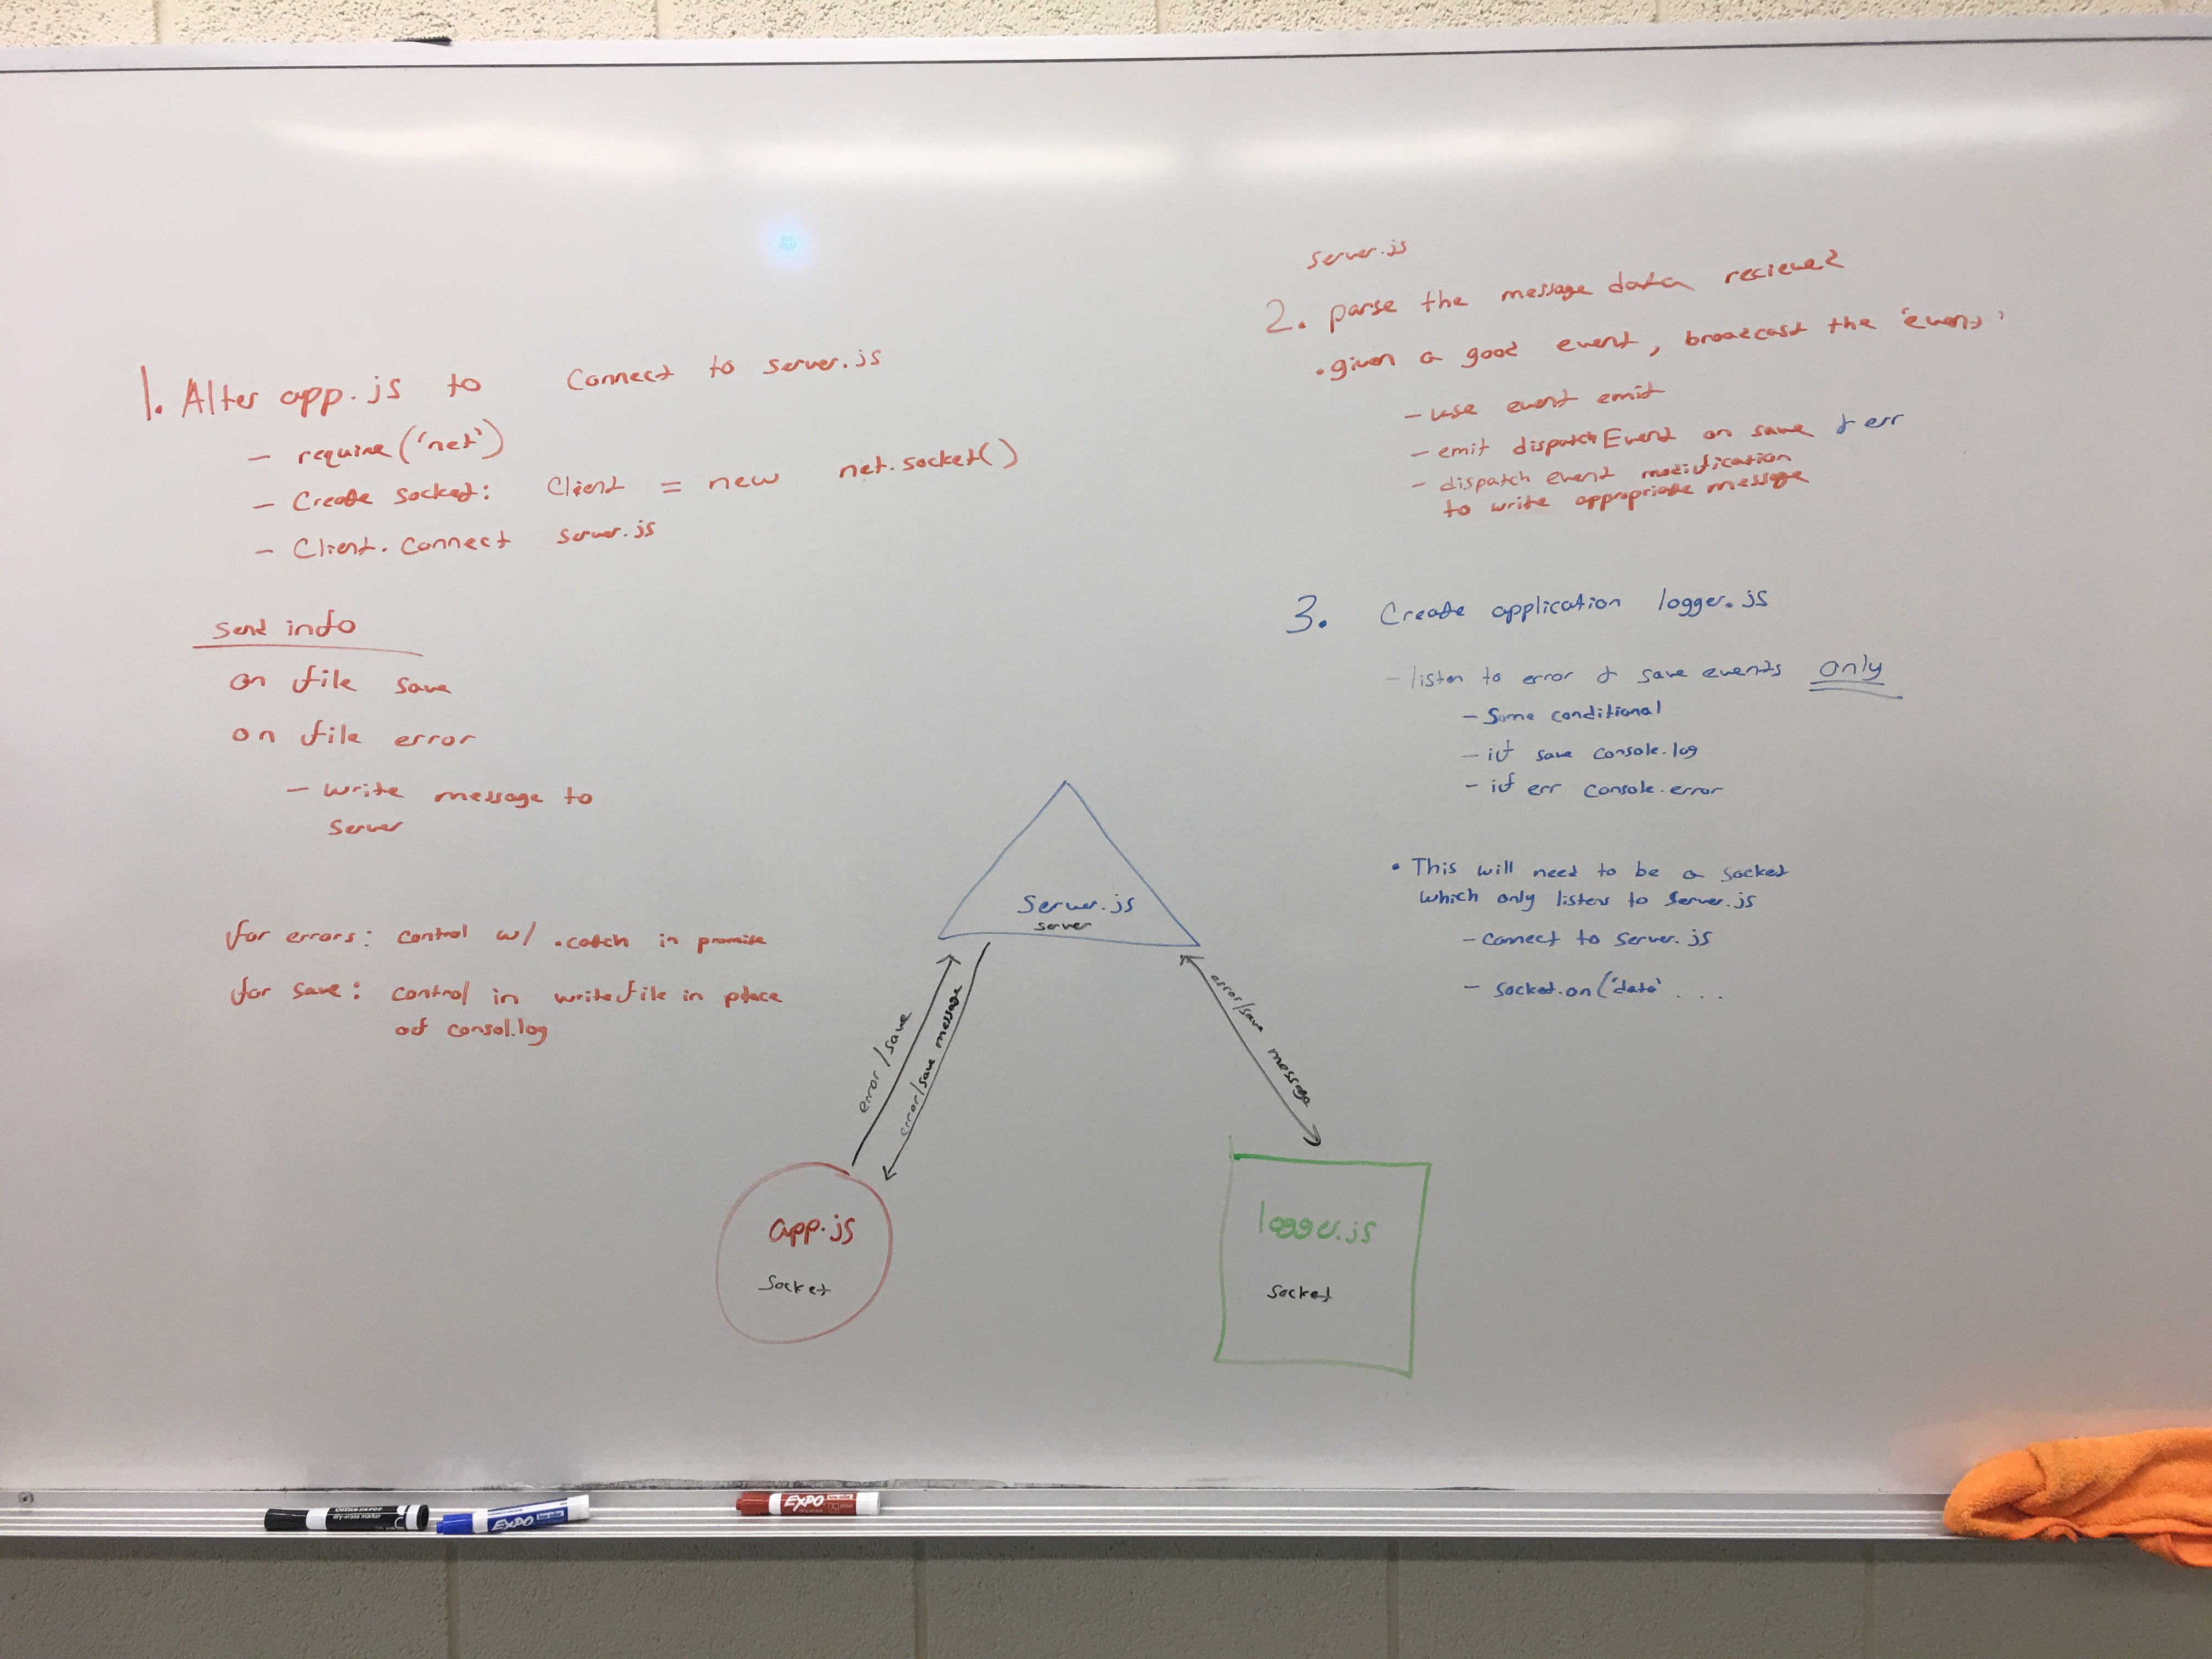 1. Alter app.js to connect to server.js
- require('net')
- Create socket: Client = new net.socket()
- Client.connect server.js
Send info
on file save
on file error
- write message to
server
for errors: control w/ .catch in promise
for save: control in writefile in place
of consol.log
server.js
2. parse the message data recieved
. given a good event, broadcast the 'event'
- use event emit
- emit dispatchEvent on save & err
- dispatch event modification
to write appropriate message
3. Create application logger.js
- listen to error & save events only
- Some conditional
- if save console.log
- if err console.error
• This will need to be a socket
which only listens to server.js
- connect to server.js
- socket.on('data' ...
Server.js
server
error/save
error/save message
error/save message
app.js
Socket
logger.js
Socket
OFFICE DEPOT
dry-erase marker
EXPO
EXPO